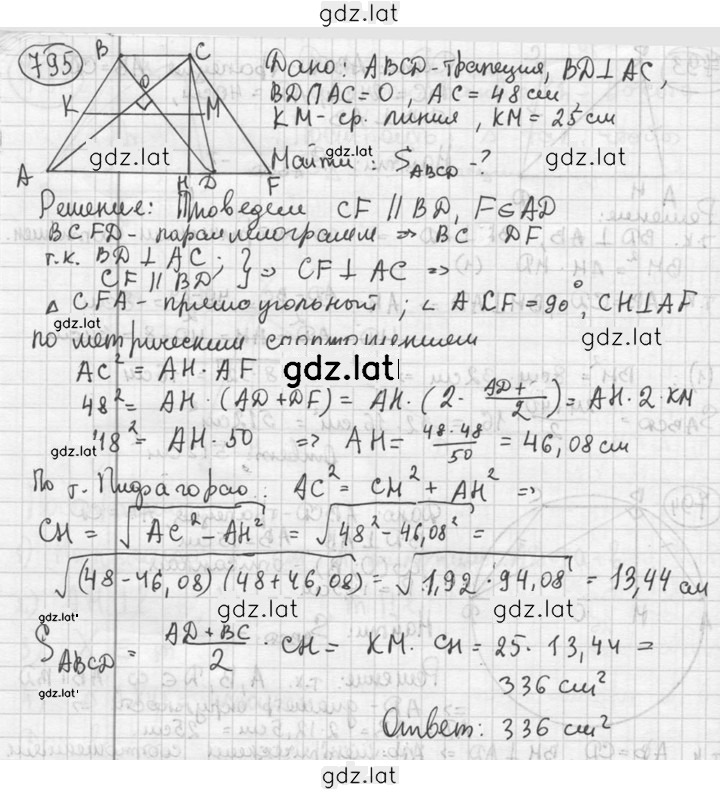 gdz.lat
795
B C
O
K M
A H D F
gdz.lat
Дано: ABCD - трапеция, BD⊥AC,
BD∩AC=O, AC=48см,
KM - ср. линия, KM=25см
Найти: S_ABCD - ?
gdz.lat
Решение: Проведем CF ∥ BD, F∈AD
BCFD - параллелограмм ⇒ BC DF
т.к. BD⊥AC; } ⇒ CF⊥AC ⇒
CF ∥ BD
△CFA - прямоугольный; ∠ACF=90°, CH⊥AF
gdz.lat
gdz.lat
по метрическим соотношениям
gdz.lat
AC² = AH · AF
48² = AH · (AD+DF) = AH · (2 · AD+ /2) = AH · 2 · KM
gdz.lat
48² = AH · 50 ⇒ AH = 48·48/50 = 46,08 см
По т. Пифагора: AC² = CH² + AH² ⇒
CH = √(AC² - AH²) = √(48² - 46,08²) =
√((48-46,08)(48+46,08)) = √(1,92 · 94,08) = 13,44 см
gdz.lat gdz.lat gdz.lat
S_ABCD = AD+BC/2 · CH = KM · CH = 25 · 13,44 =
336 см²
gdz.lat
Ответ: 336 см²
gdz.lat